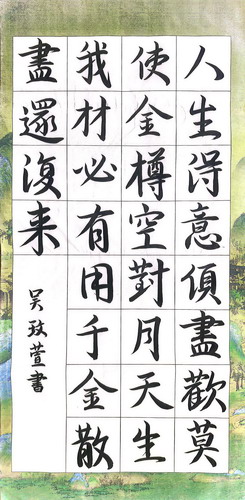 人生得意須盡歡莫
使金樽空對月天生
我材必有用千金散
盡還復来
吴玫萱書